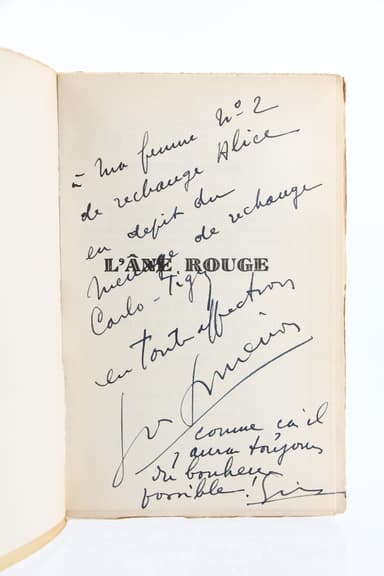 à ma femme N° 2
de rechange Alice
en dépit du
ménage de rechange
L'ÂNE ROUGE
Carlo-Tigy
en toute affection
Simenon
comme ça il
y aura toujours
du bonheur
possible! Sim